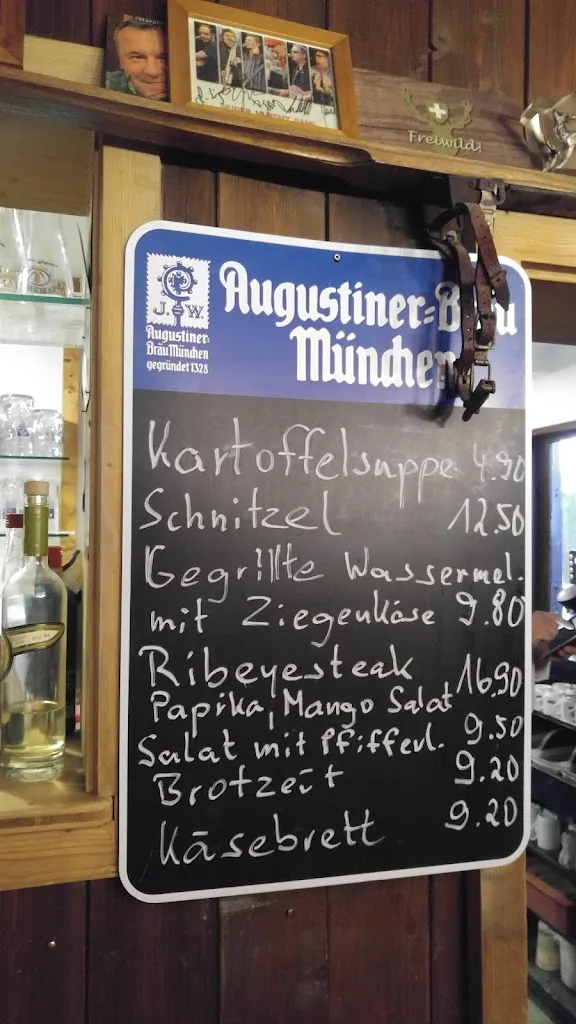 Freiwild!
J. W.
Augustiner-
Bräu München
gegründet 1328
Augustiner-Bräu
München
Kartoffelsuppe 4.90
Schnitzel 12.50
Gegrillte Wassermel.
mit Ziegenkäse 9.80
Ribeyesteak 16.90
Papika, Mango Salat
Salat mit Pfifferl. 9.50
Brotzeit 9.20
Käsebrett 9.20